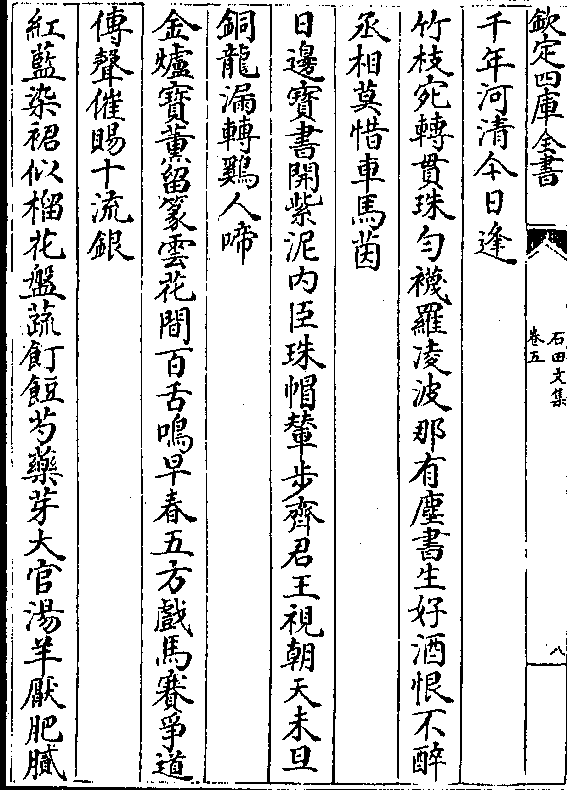 欽定四庫全書
石田文集
卷五
八
千年河清今日逢
竹枝宛轉貫珠勻襪羅凌波那有塵書生好酒恨不醉
丞相莫惜車馬茵
日邊寶書開紫泥内臣珠帽輦步齊君王視朝天未旦
銅龍漏轉鷄人啼
金爐寶薰留篆雲花間百舌鳴早春五方戲馬賽爭道
傳聲催賜十流銀
紅藍染裙似榴花盤蔬飣餖芍藥芽大官湯羊厭肥膩